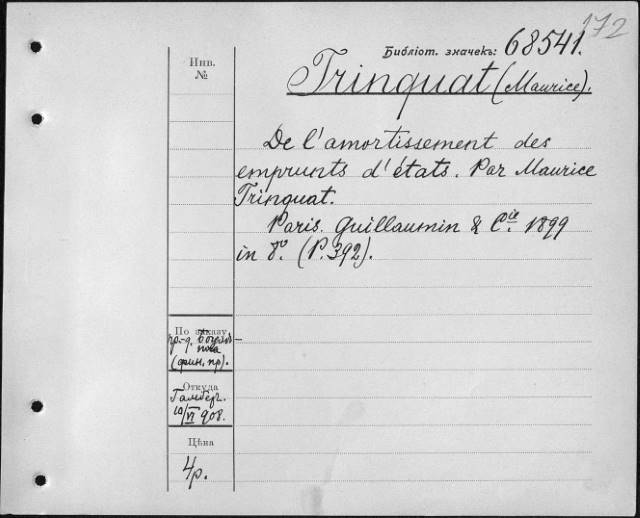 172
Библіот. значекъ: 68541.
Инв.
№
Trinquat (Maurice).
De l'amortissement des
emprunts d'états. Par Maurice
Trinquat.
Paris. Guillaumin & Cie. 1899
in 8°. (P. 392).
По заказу
(фин. пр).
Откуда
10/VI 908.
Цѣна
4р.